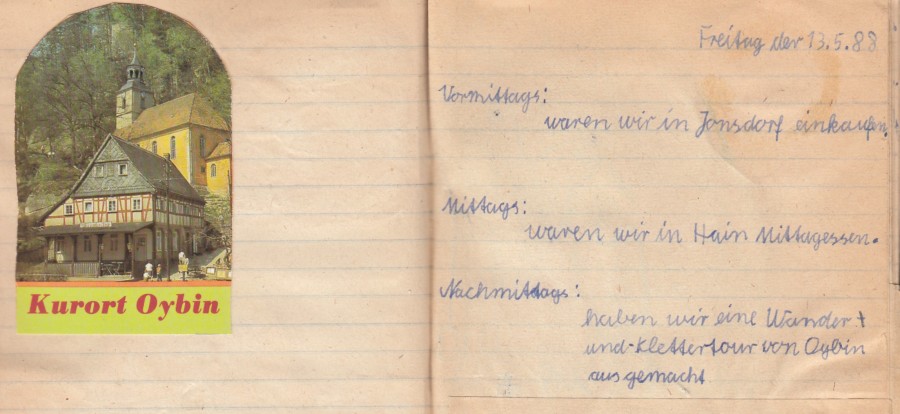 Kurort Oybin
Freitag der 13.5.88
Vormittags:
waren wir in Jonsdorf einkaufen.
Mittags:
waren wir in Hain Mittagessen.
Nachmittags:
haben wir eine Wander +
und-Klettertour von Oybin
aus gemacht